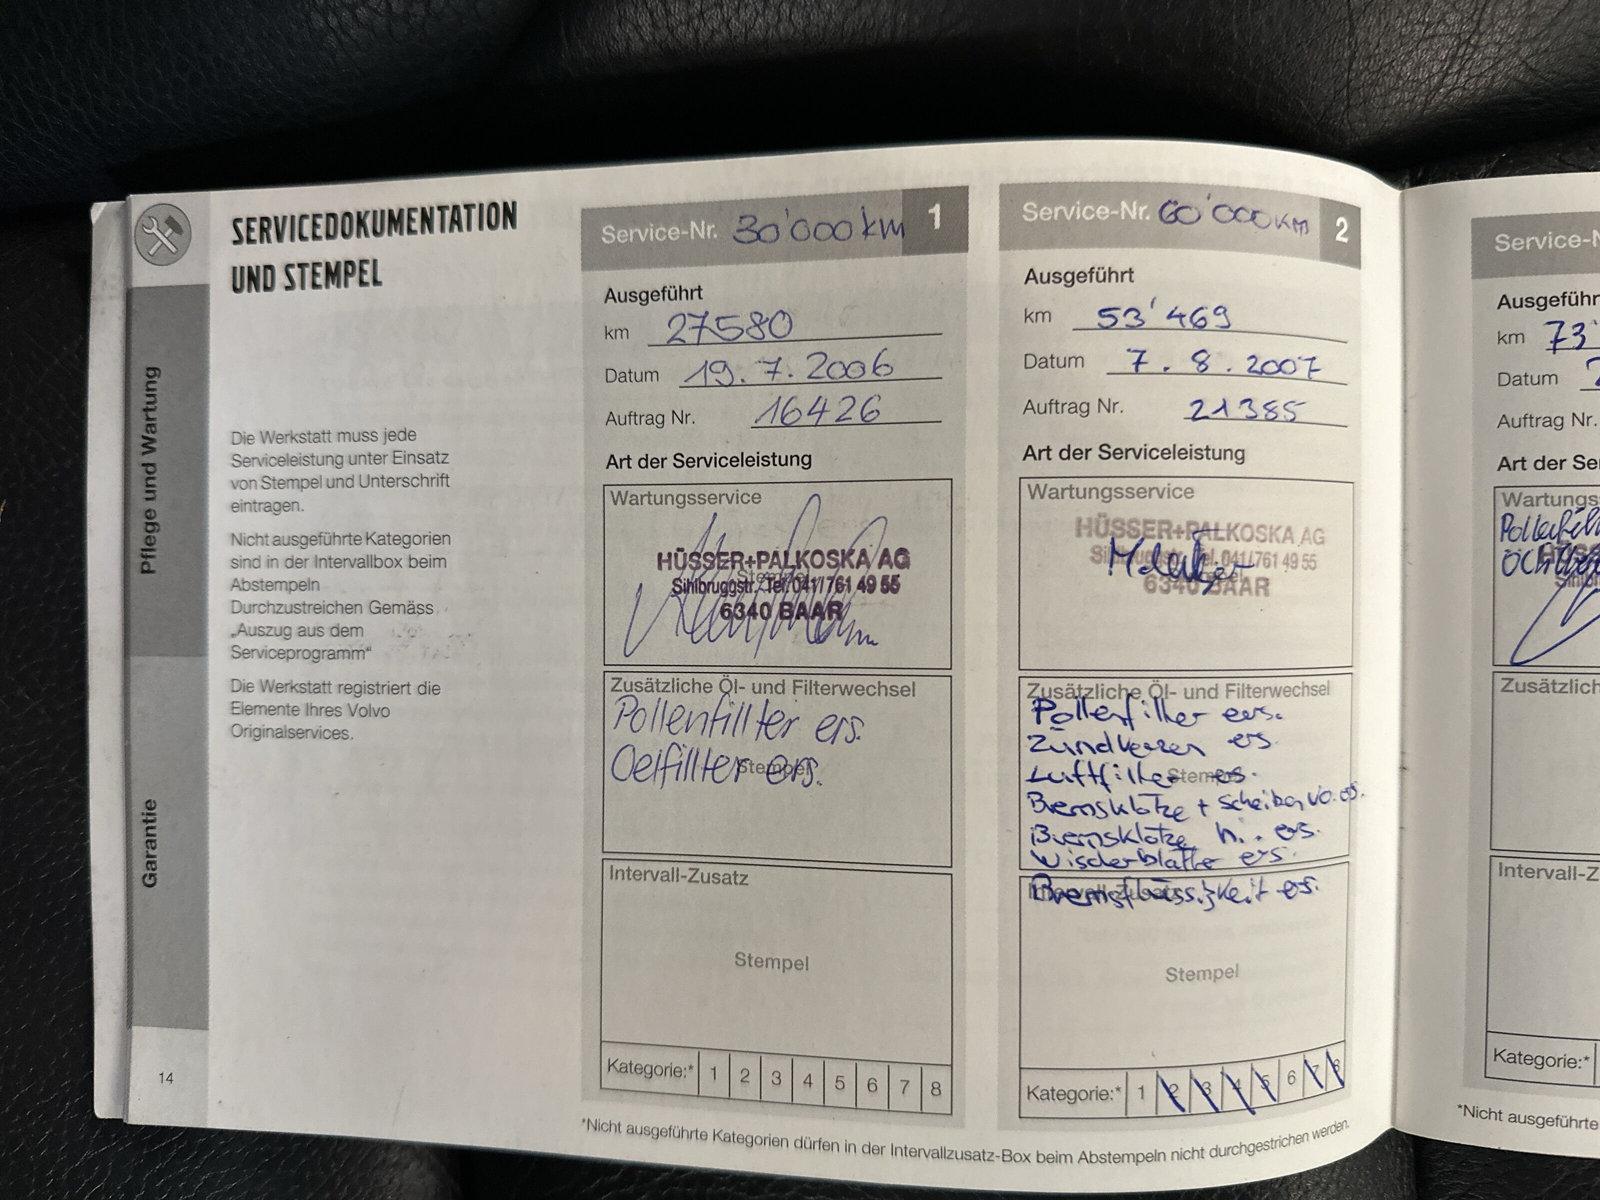 SERVICEDOKUMENTATION
UND STEMPEL
Pflege und Wartung
Garantie
Die Werkstatt muss jede
Serviceleistung unter Einsatz
von Stempel und Unterschrift
eintragen.
Nicht ausgeführte Kategorien
sind in der Intervallbox beim
Abstempeln
Durchzustreichen Gemäss
„Auszug aus dem
Serviceprogramm“
Die Werkstatt registriert die
Elemente Ihres Volvo
Originalservices.
14
Service-Nr. 30'000 km 1
Ausgeführt
km 27580
Datum 19.7.2006
Auftrag Nr. 16426
Art der Serviceleistung
Wartungsservice
HÜSSER+PALKOSKA AG
Sihlbruggstr. Tel. 041/761 49 55
6340 BAAR
Zusätzliche Öl- und Filterwechsel
Pollenfillter ers.
Oelfillter ers.
Stempel
Intervall-Zusatz
Stempel
Kategorie:* 1 2 3 4 5 6 7 8
Service-Nr. 60'000 km 2
Ausgeführt
km 53'469
Datum 7.8.2007
Auftrag Nr. 21385
Art der Serviceleistung
Wartungsservice
HÜSSER+PALKOSKA AG
Sihlbruggstr. Tel. 041/761 49 55
6340 BAAR
Zusätzliche Öl- und Filterwechsel
Pollenfilter ers.
Zündkerzen ers.
Luftfilter ers.
Stempel
Bremsklötze + Scheiben vo. ers.
Bremsklötze h. ers.
Wischerblätter ers.
Intervall-Zusatz
Bremsflüssigkeit ers.
Stempel
Kategorie:* 1 2 3 4 5 6 7 8
*Nicht ausgeführte Kategorien dürfen in der Intervallzusatz-Box beim Abstempeln nicht durchgestrichen werden.
Service-N
Ausgeführ
km 73'
Datum
Auftrag Nr.
Art der Se
Wartungs
Zusätzlich
Intervall-Z
Kategorie:*
*Nicht ausgeführte